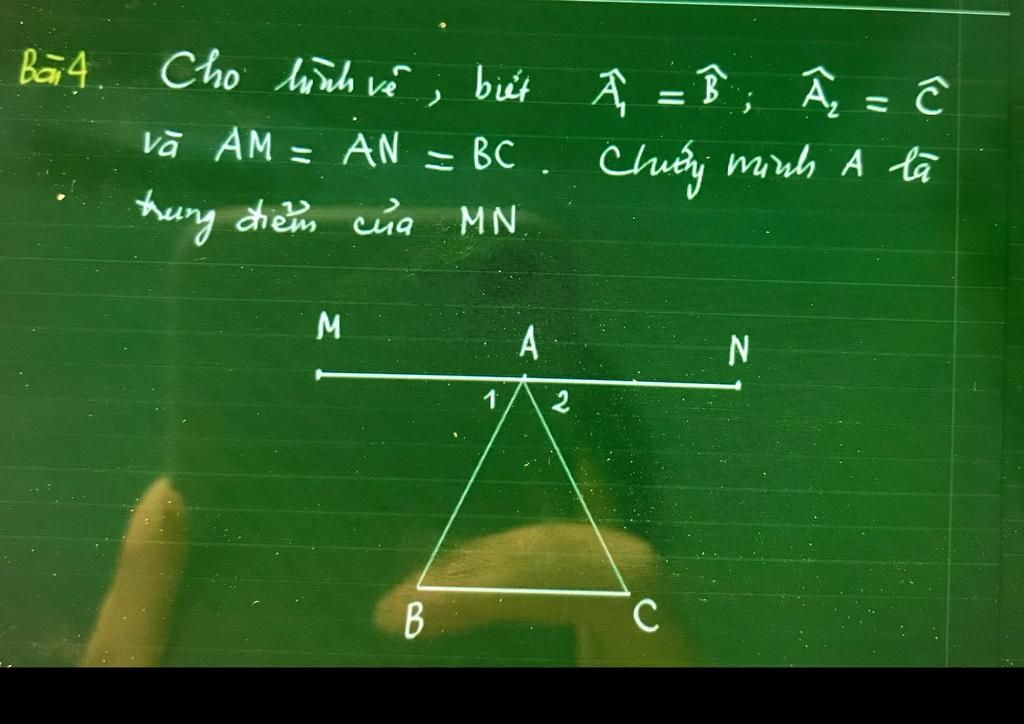 Bài 4. Cho hình vẽ, biết Â₁ = B̂; Â₂ = Ĉ
và AM = AN = BC. Chứng minh A là
trung điểm của MN.
M
A
N
1 2
B
C